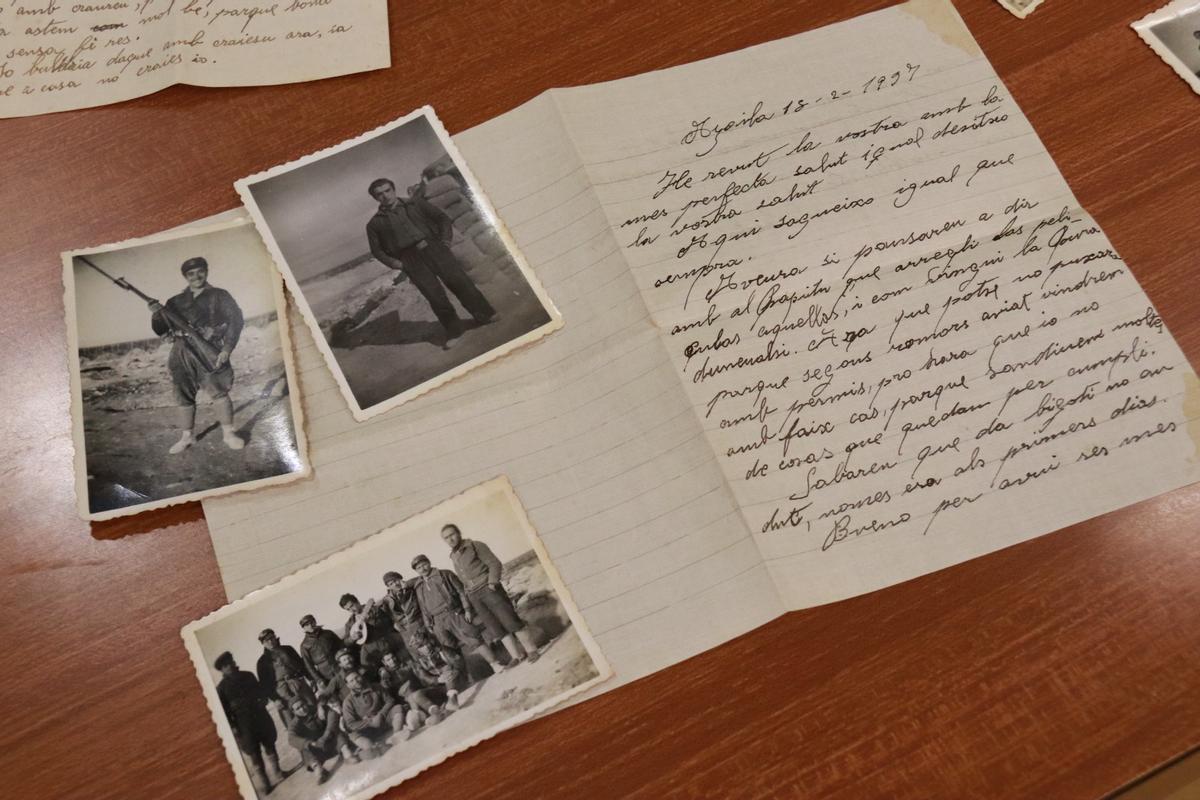 amb creureu,
a astem com mol be, parque bona
sensa fi res.
buldria daque amb craiesu ara, sa
e a casa no craies io.
Azaila 18-2-1937
He revut la vostra amb la
mes perfecta salut igual desitxo
la vostra salut
Aqui sagueixo igual que
sempra.
Aveura si pansaren a dir
amb al Papitu que arregli las peli-
culas aquellas, i com tingui la
dunenahi. Ara que potse no puxare
parque segons romors aviat vindrem
amb permis, pro hara que io no
amb faix cas, parque sandiuen moltes
de cosas que quedan per cumpli.
Sabaren que da bigoti no an
dut, nomes era als primers dias.
Bueno per avui res mes